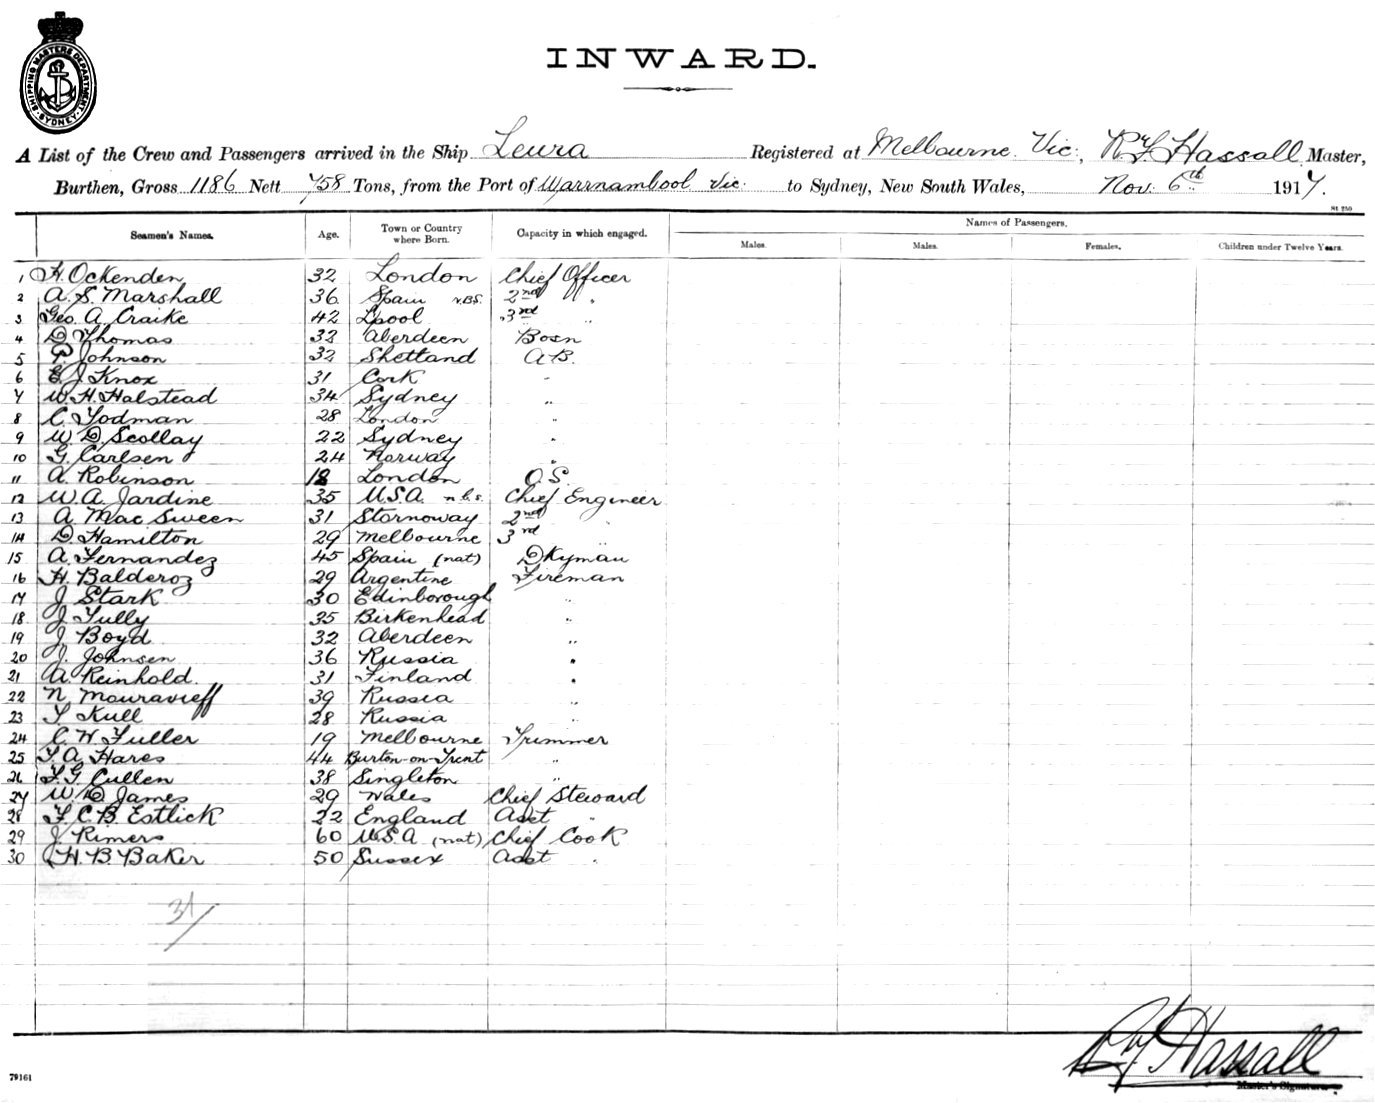 SHIPPING MASTERS DEPARTMENT SYDNEY
INWARD.
A List of the Crew and Passengers arrived in the Ship Leura Registered at Melbourne Vic., R Y Hassall Master,
Burthen, Gross 1186 Nett 758 Tons, from the Port of Warrnambool Vic. to Sydney, New South Wales, Nov. 6th 1917.
St 250
Seamen's Names. Age. Town or Country where Born. Capacity in which engaged. Names of Passengers.
Males. Males. Females. Children under Twelve Years.
1 H. Ockenden 32 London Chief Officer
2 A. S. Marshall 36 Spain N.B.S. 2nd "
3 Geo. A. Craike 42 L'pool 3rd "
4 D Thomas 32 Aberdeen Bosn
5 P. Johnson 32 Shetland A.B.
6 E. J. Knox 31 Cork "
7 W. H. Halstead 34 Sydney "
8 C. Yodman 28 London "
9 W. D. Scollay 22 Sydney "
10 G. Carlsen 24 Norway "
11 A. Robinson 18 London O.S.
12 W. A. Jardine 35 U.S.A. n.b.s. Chief Engineer
13 A. Mac Sween 31 Stornoway 2nd "
14 D. Hamilton 29 Melbourne 3rd "
15 A. Fernandez 45 Spain (nat) Dkyman
16 H. Balderoz 29 Argentine Fireman
17 J Stark 30 Edinborough "
18 J. Tully 35 Birkenhead "
19 J Boyd 32 Aberdeen "
20 J. Johnsen 36 Russia "
21 A. Reinhold. 31 Finland "
22 N Mouravieff 39 Russia "
23 T Kull 28 Russia "
24 C. W. Fuller 19 Melbourne Trimmer
25 T. A. Hares 44 Burton-on-Trent "
26 T. G. Cullen 38 Singleton "
27 W. D. James 29 Wales Chief Steward
28 F. C. B. Estlick 22 England Asst "
29 J. Rimers 60 U.S.A (nat) Chief Cook
30 H. B. Baker 50 Sussex Asst "
31/
R Y Hassall
Master's Signature
79161